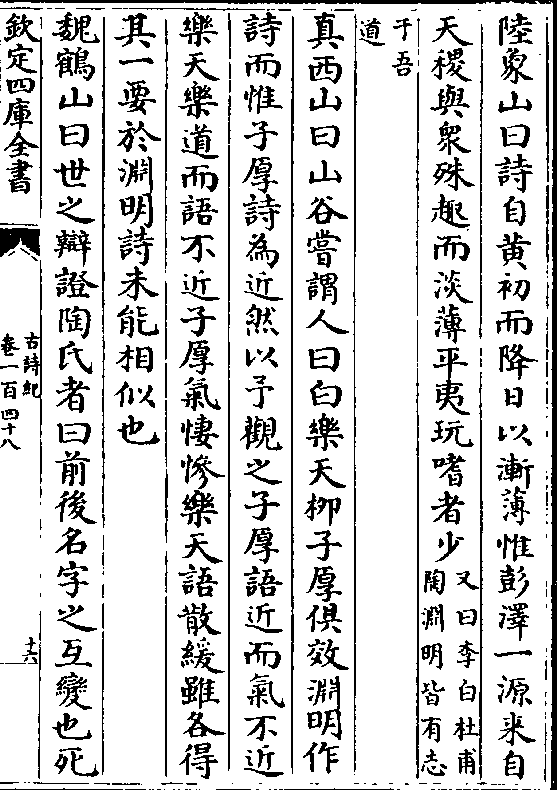 陸象山曰詩自黄初而降日以漸薄惟彭澤一源来自
天稷與衆殊趣而淡薄平夷玩嗜者少又曰李白杜甫
陶淵明皆有志
于吾
道
真西山曰山谷嘗謂人曰白樂天柳子厚俱效淵明作
詩而惟子厚詩為近然以予觀之子厚語近而氣不近
樂天樂道而語不近子厚氣悽慘樂天語散緩雖各得
其一要於淵明詩未能相似也
魏鶴山曰世之辯證陶氏者曰前後名字之互變也死
欽定四庫全書
古詩紀
卷一百四十八
十六